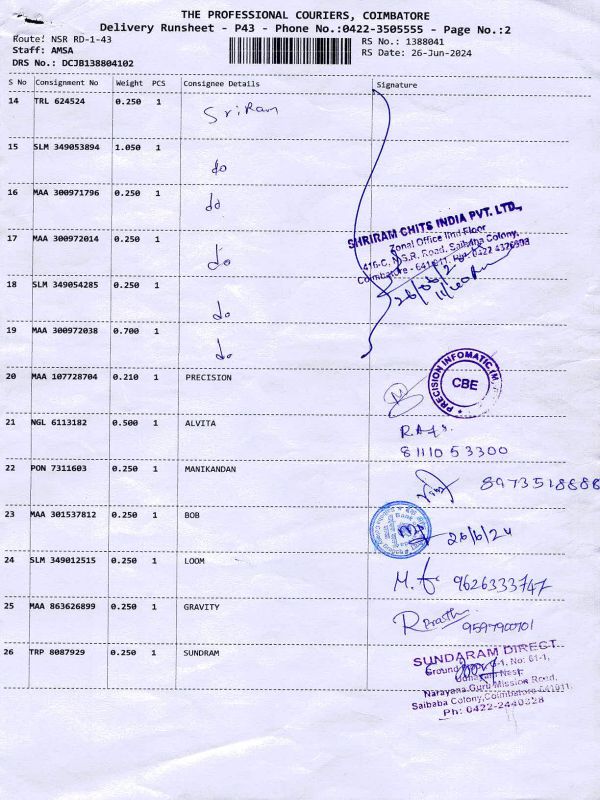 THE PROFESSIONAL COURIERS, COIMBATORE
Delivery Runsheet - P43 - Phone No.:0422-3505555 - Page No.:2
Route: NSR RD-1-43 RS No.: 1388041
Staff: AMSA RS Date: 26-Jun-2024
DRS No.: DCJB138804102
S No Consignment No Weight PCS Consignee Details Signature
14 TRL 624524 0.250 1 Sriram
15 SLM 349053894 1.050 1 do
16 MAA 300971796 0.250 1 do
17 MAA 300972014 0.250 1 do
SHRIRAM CHITS INDIA PVT. LTD.,
Zonal Office IInd Floor
416-C, N.S.R. Road, Saibaba Colony,
Coimbatore - 641 011. 0422
18 SLM 349054285 0.250 1 do
19 MAA 300972038 0.700 1 do
20 MAA 107728704 0.210 1 PRECISION
PRECISION INFOMATIC (M)
CBE
21 NGL 6113182 0.500 1 ALVITA
81110 53300
22 PON 7311603 0.250 1 MANIKANDAN 8973518888
23 MAA 301537812 0.250 1 BOB 26/6/24
24 SLM 349012515 0.250 1 LOOM 9626333747
25 MAA 863626899 0.250 1 GRAVITY 9597900701
26 TRP 8087929 0.250 1 SUNDRAM
SUNDARAM DIRECT
Ground No: 61-1,
Narayana Guru Mission Road,
Saibaba Colony, Coimbatore 641011,
Ph: 0422-2440328